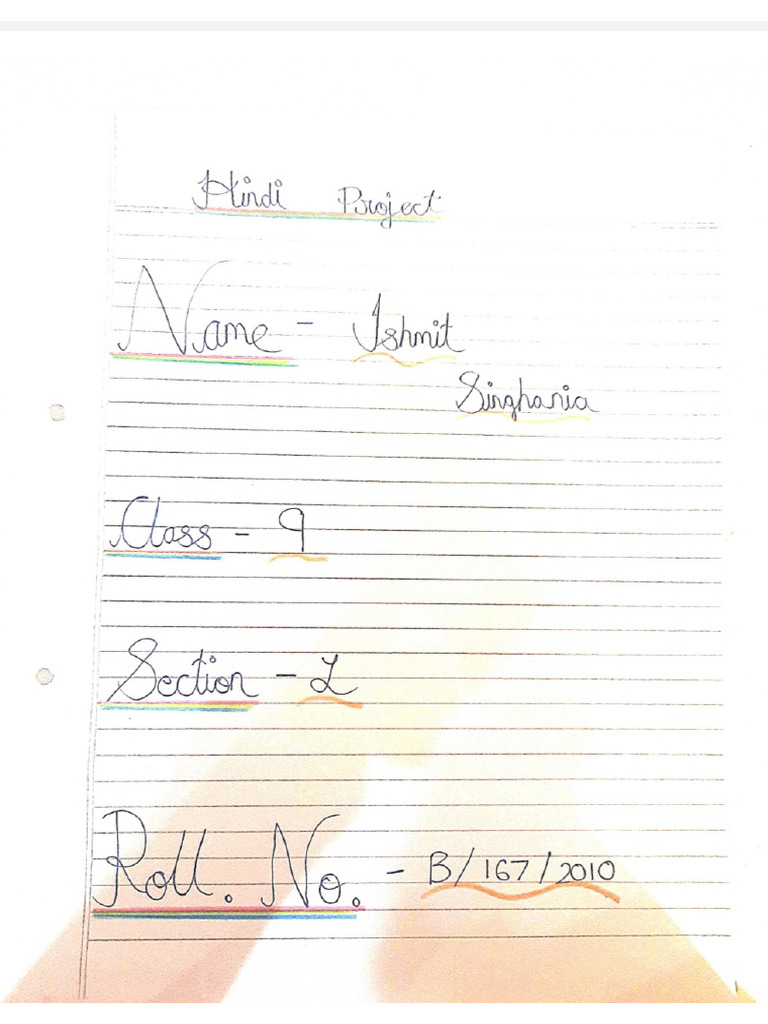 Hindi Project
Name - Ishmit
Singhania
Class - 9
Section - L
Roll. No. - B/167/2010